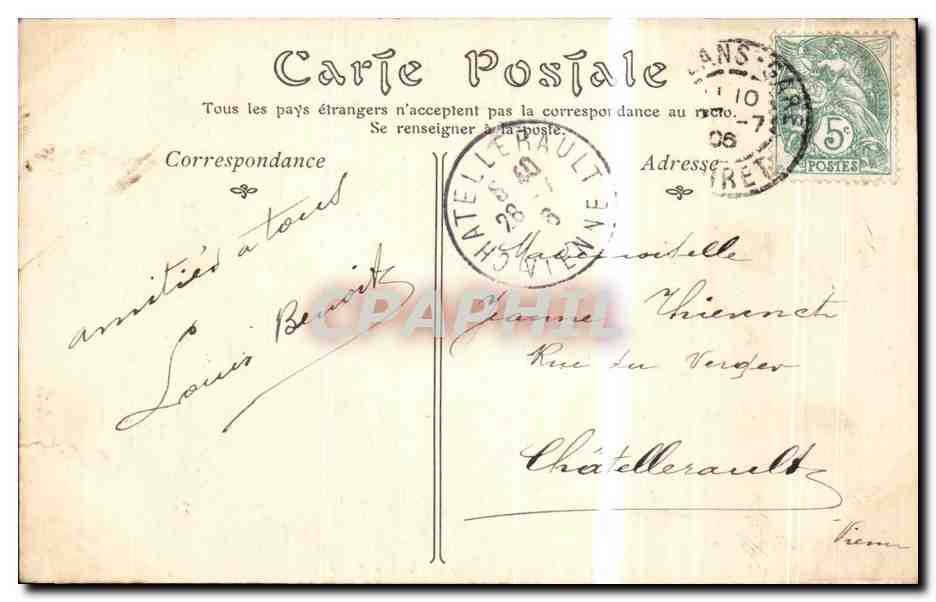 Carte Postale
Tous les pays étrangers n'acceptent pas la correspondance au recto.
Se renseigner à la poste.
Correspondance
Adresse
amitiés a tous
Louis Benoit
Mademoiselle
Jeanne
Rue du Verger
Châtellerault
Vienne
CHATELLERAULT
VIENNE
28
ANS-GARE
10
7
06
IRET
5c
POSTES
CPAPHIL